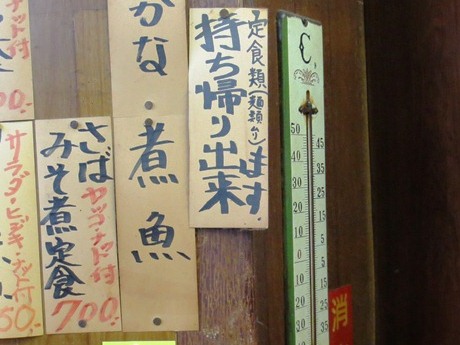 定食類(麺類り)
持ち帰り出来ます
かな
煮魚
さば
みそ煮定食
ヤッコ・ナット付
700.
サラダ・ヒジキ・ナット付
50.-
ナット付
00.-
C
50
40
30
20
10
0
10
20
30
45
35
25
15
5
5
15
25
35
消